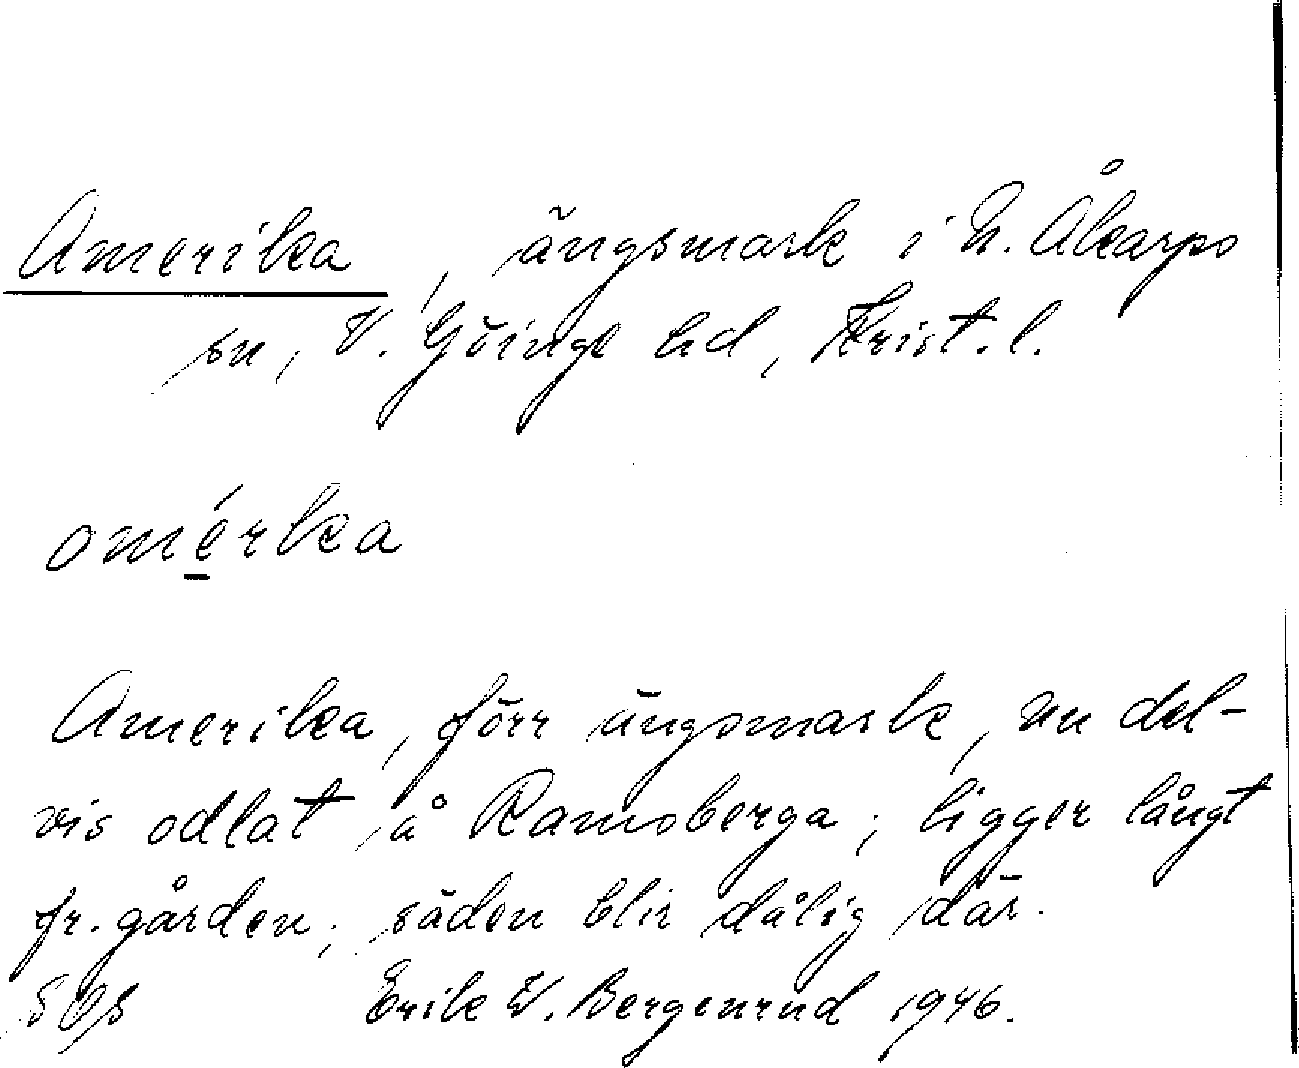 Amerika, ängsmark i N. Åkarps
sn, V. Göinge hd, Krist. l.
omérka
Amerika, förr ängsmark, nu del-
vis odlat å Ramsberga; ligger långt
fr. gården; säden blir dålig där.
Erik W. Bergenrud 1946.